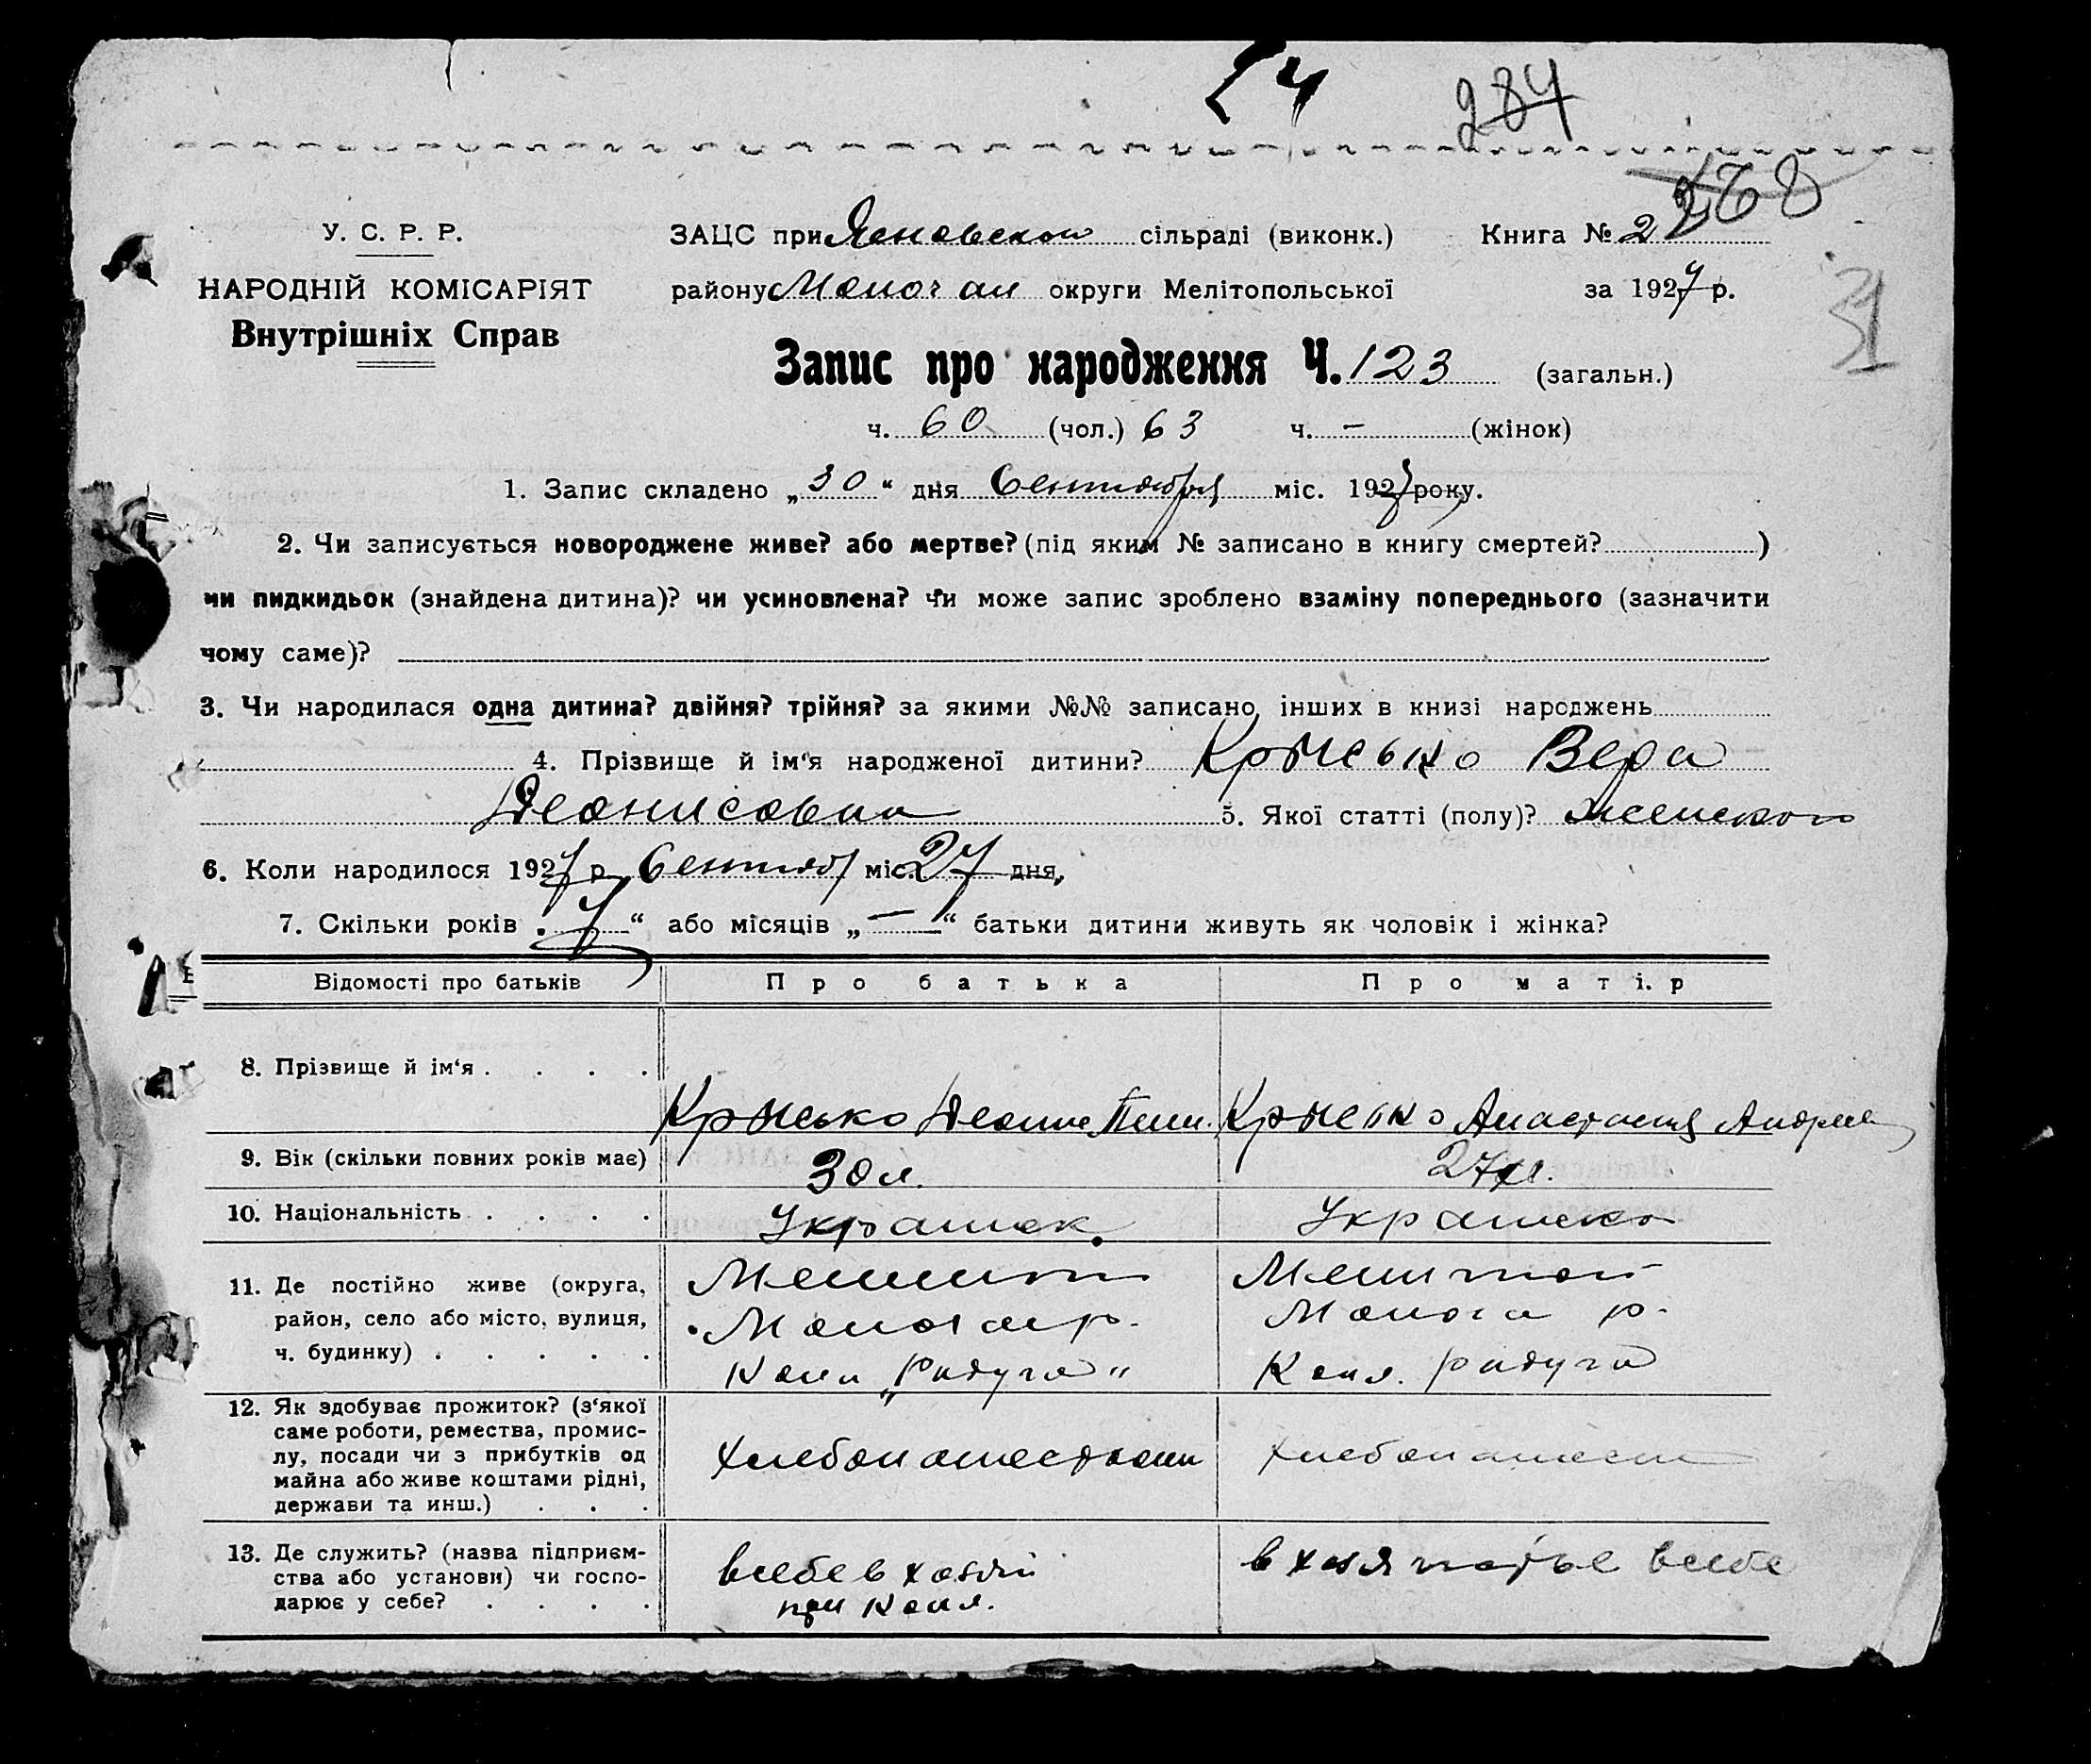 24
284
268
У. С. Р. Р. ЗАЦС при сільраді (виконк.) Книга № 2
НАРОДНІЙ КОМІСАРІЯТ району округи Мелітопольської за 1927 р.
Внутрішніх Справ
31
Запис про народження Ч. 123 (загальн.)
ч. 60 (чол.) 63 ч. – (жінок)
1. Запис складено „30“ дня Сентября міс. 1927 року.
2. Чи записується новороджене живе? або мертве? (під яким № записано в книгу смертей? )
чи пидкидьок (знайдена дитина)? чи усиновлена? Чи може запис зроблено взаміну попереднього (зазначити
чому саме)?
3. Чи народилася одна дитина? двійня? трійня? за якими №№ записано інших в книзі народжень
4. Прізвище й ім‘я народженої дитини? Крысько Вера
Деонисовна 5. Якої статті (полу)? женского
6. Коли народилося 1927 р. Сентяб міс. 27 дня,
7. Скільки років „7“ або місяців „—“ батьки дитини живуть як чоловік і жінка?
Відомості про батьків Про батька Про матір
8. Прізвище й ім‘я . . . . Крысько Крысько Анастасия Андрее
9. Вік (скільки повних років має) 30 л. 27 л.
10. Національність . . . . Украинск. Украинско
11. Де постійно живе (округа,
район, село або місто, вулиця,
ч. будинку) . . . . . „Радуга“ Радуга
12. Як здобуває прожиток? (з‘якої
саме роботи, ремества, промис-
лу, посади чи з прибутків од
майна або живе коштами рідні,
держави та инш.) . . . хлебопашеством хлебопашест
13. Де служить? (назва підприєм-
ства або установи) чи госпо-
дарює у себе? . . . .